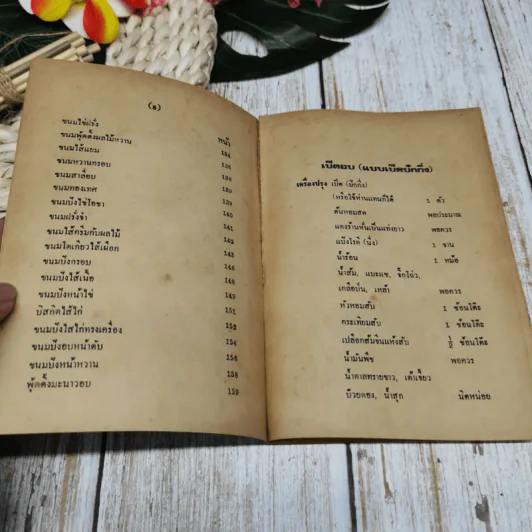 (๘)
หน้า
ขนมไข่ฝรั่ง
ขนมพุ้ดดิ้งผลไม้หวาน 134
ขนมไส้แยม 135
ขนมหวานกรอบ 136
ขนมสาลี่อบ 138
ขนมทองเทศ 139
ขนมปังไข่ไอซา 140
ขนมฝรั่งขำ 141
ขนมไส้ครีมกับผลไม้ 142
ขนมโตเกียวไส้เผือก 143
ขนมปังกรอบ 144
ขนมปังไส้เนื้อ 146
ขนมปังหน้าไข่ 149
บิสกิตไส้ไก่ 151
ขนมปังใส่ไก่ทรงเครื่อง 153
ขนมปังอบหน้าตับ 154
ขนมปังหน้าหวาน 156
พุ้ดดิ้งมะนาวอบ 158
159
เป็ดอบ (แบบเป็ดปักกิ่ง)
เครื่องปรุง เป็ด (ปักกิ่ง)
(หรือใช้ห่านแทนก็ได้ ๑ ตัว
ต้นหอมสด พอประมาณ
แตงร้านหั่นเป็นแท่งยาว พอควร
แป้งโรตี (นึ่ง) ๑ จาน
น้ำร้อน ๑ หม้อ
น้ำส้ม, แบะแซ, จิ๊กโฉ่ว,
เกลือป่น, เหล้า พอควร
หัวหอมสับ ๑ ช้อนโต๊ะ
กระเทียมสับ ๑ ช้อนโต๊ะ
เปลือกส้มจีนแห้งสับ ½ ช้อนโต๊ะ
น้ำมันพืช พอควร
น้ำตาลทรายขาว, เต้าเจี้ยว
บ๊วยดอง, น้ำสุก นิดหน่อย